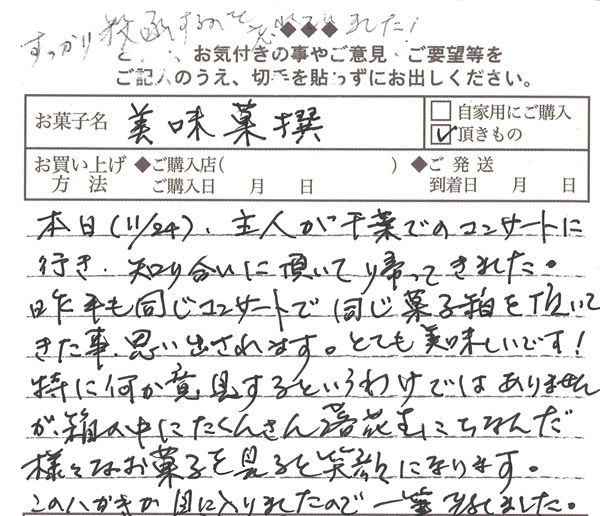 すっかり投函するのを忘れていました!
◆◆◆
お気付きの事やご意見・ご要望等を
ご記入のうえ、切手を貼らずにお出しください。
お菓子名 美味菓撰 □自家用にご購入
☑頂きもの
お買い上げ方法 ◆ご購入店( ) ◆ご発送
ご購入日 月 日 到着日 月 日
本日(11/24)、主人が千葉でのコンサートに
行き、知り合いに頂いて帰ってきました。
昨年も同じコンサートで同じ菓子箱を頂いて
きた事、思い出されます。とても美味しいです!
特に何か意見するというわけではありません
が、箱の中にたくさん落花生にちなんだ
様々なお菓子を見ると笑顔になります。
このハガキが目に入りましたので一筆
しました。